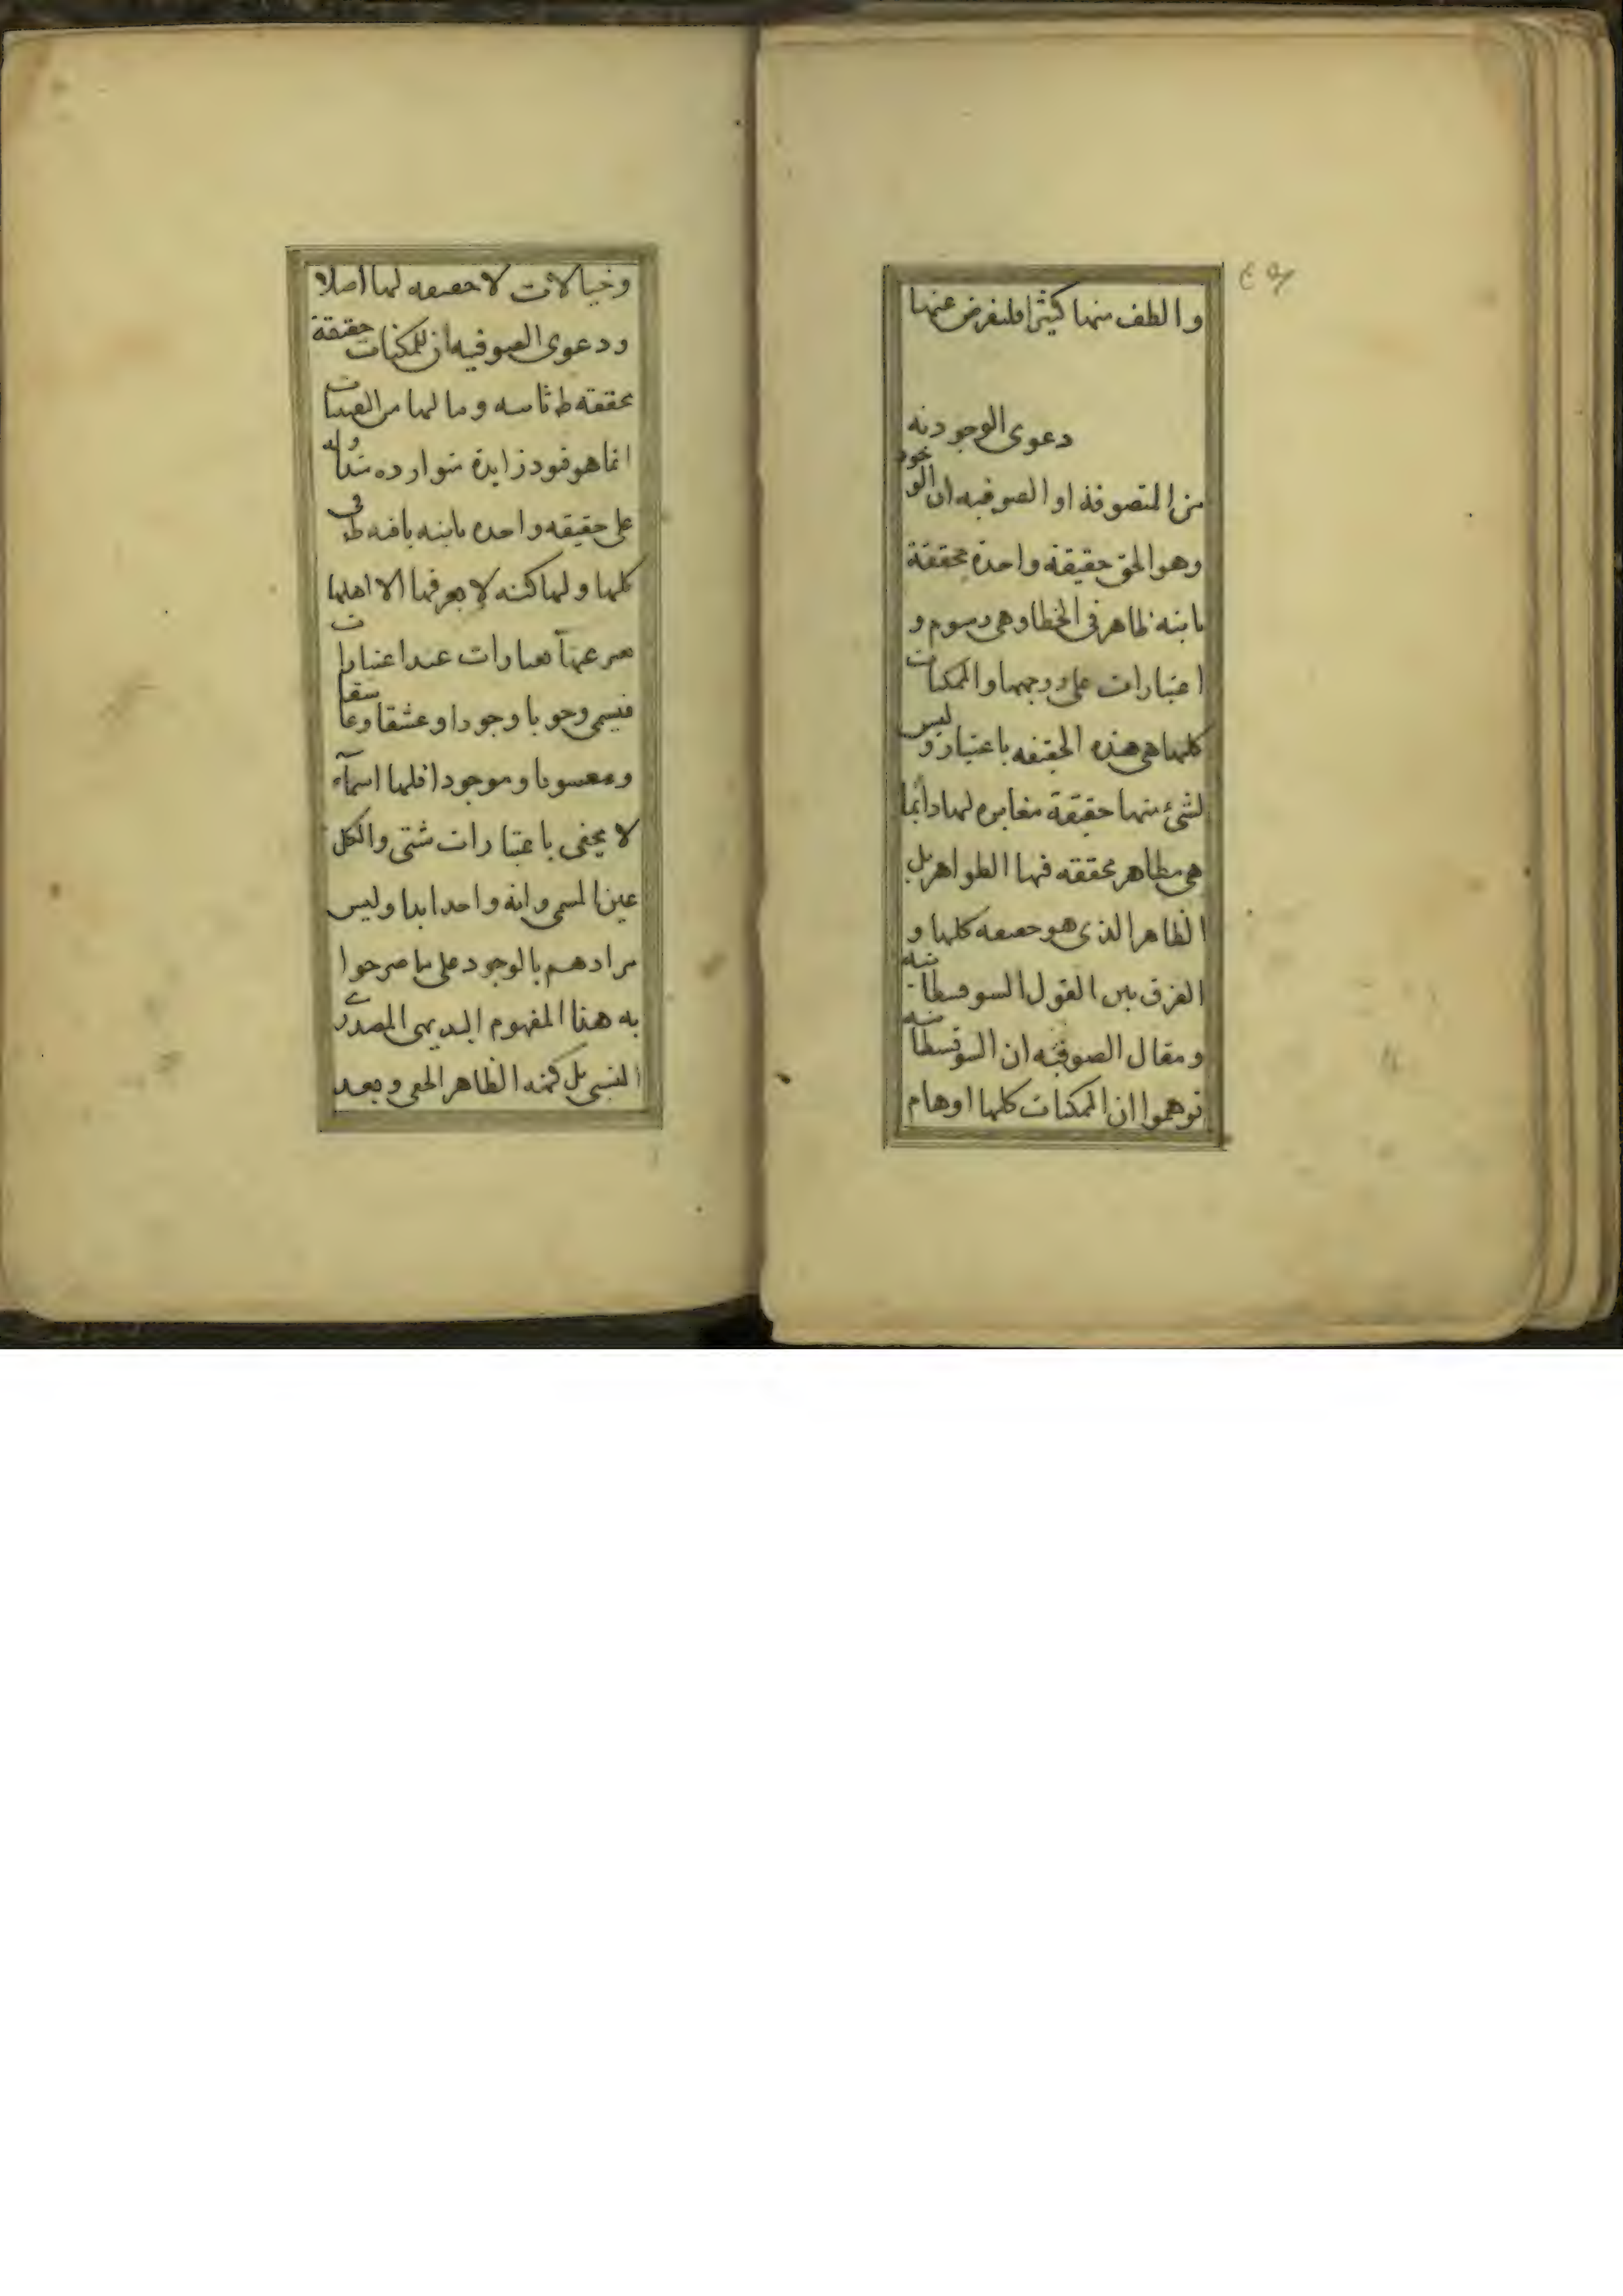 والطف منها كثيرا فلنفرض عنها
دعوى الوجودية
من المتصوفة او الصوفيه ان الوجود
وهو الحق حقيقة واحدة محققة
ثابته ظاهر في الخطا وهي رسوم و
اعتبارات على وجهها والممكنات
كلها هي هذه الحقيقه باعتبار وليس
لشئ منها حقيقة مغايره لها دائما
هي مظاهر محققه فيها الظواهر بل
الظاهر الذى هو حقيقه كلها و
الفرق بين القول السوفسطائيه
ومقال الصوفيه ان السوفسطائيه
توهموا ان الممكنات كلها اوهام
وخيالات لا حقيقه لها اصلا
ودعوى الصوفيه ان للمكنات حقيقة
محققه ثابته وما لها من التعينات
انما هو قيود زايدة متوارده متداوله
على حقيقه واحده ثابته باقيه في
كلها ولها كنه لا يعرفها الا اهلها
يعبر عنها بعبارات عند اعتبارات
فيسمى وجوبا وجودا وعشقا وعاشقا
ومعشوقا وموجودا فلها اسماء
لا يخفى باعتبارات شتى والكل
عين المسمى وانه واحد ابدا وليس
مرادهم بالوجود على ما صرحوا
به هذا المفهوم البديهى المصدرى
النسبى بل كنه الظاهر الحق وبعد